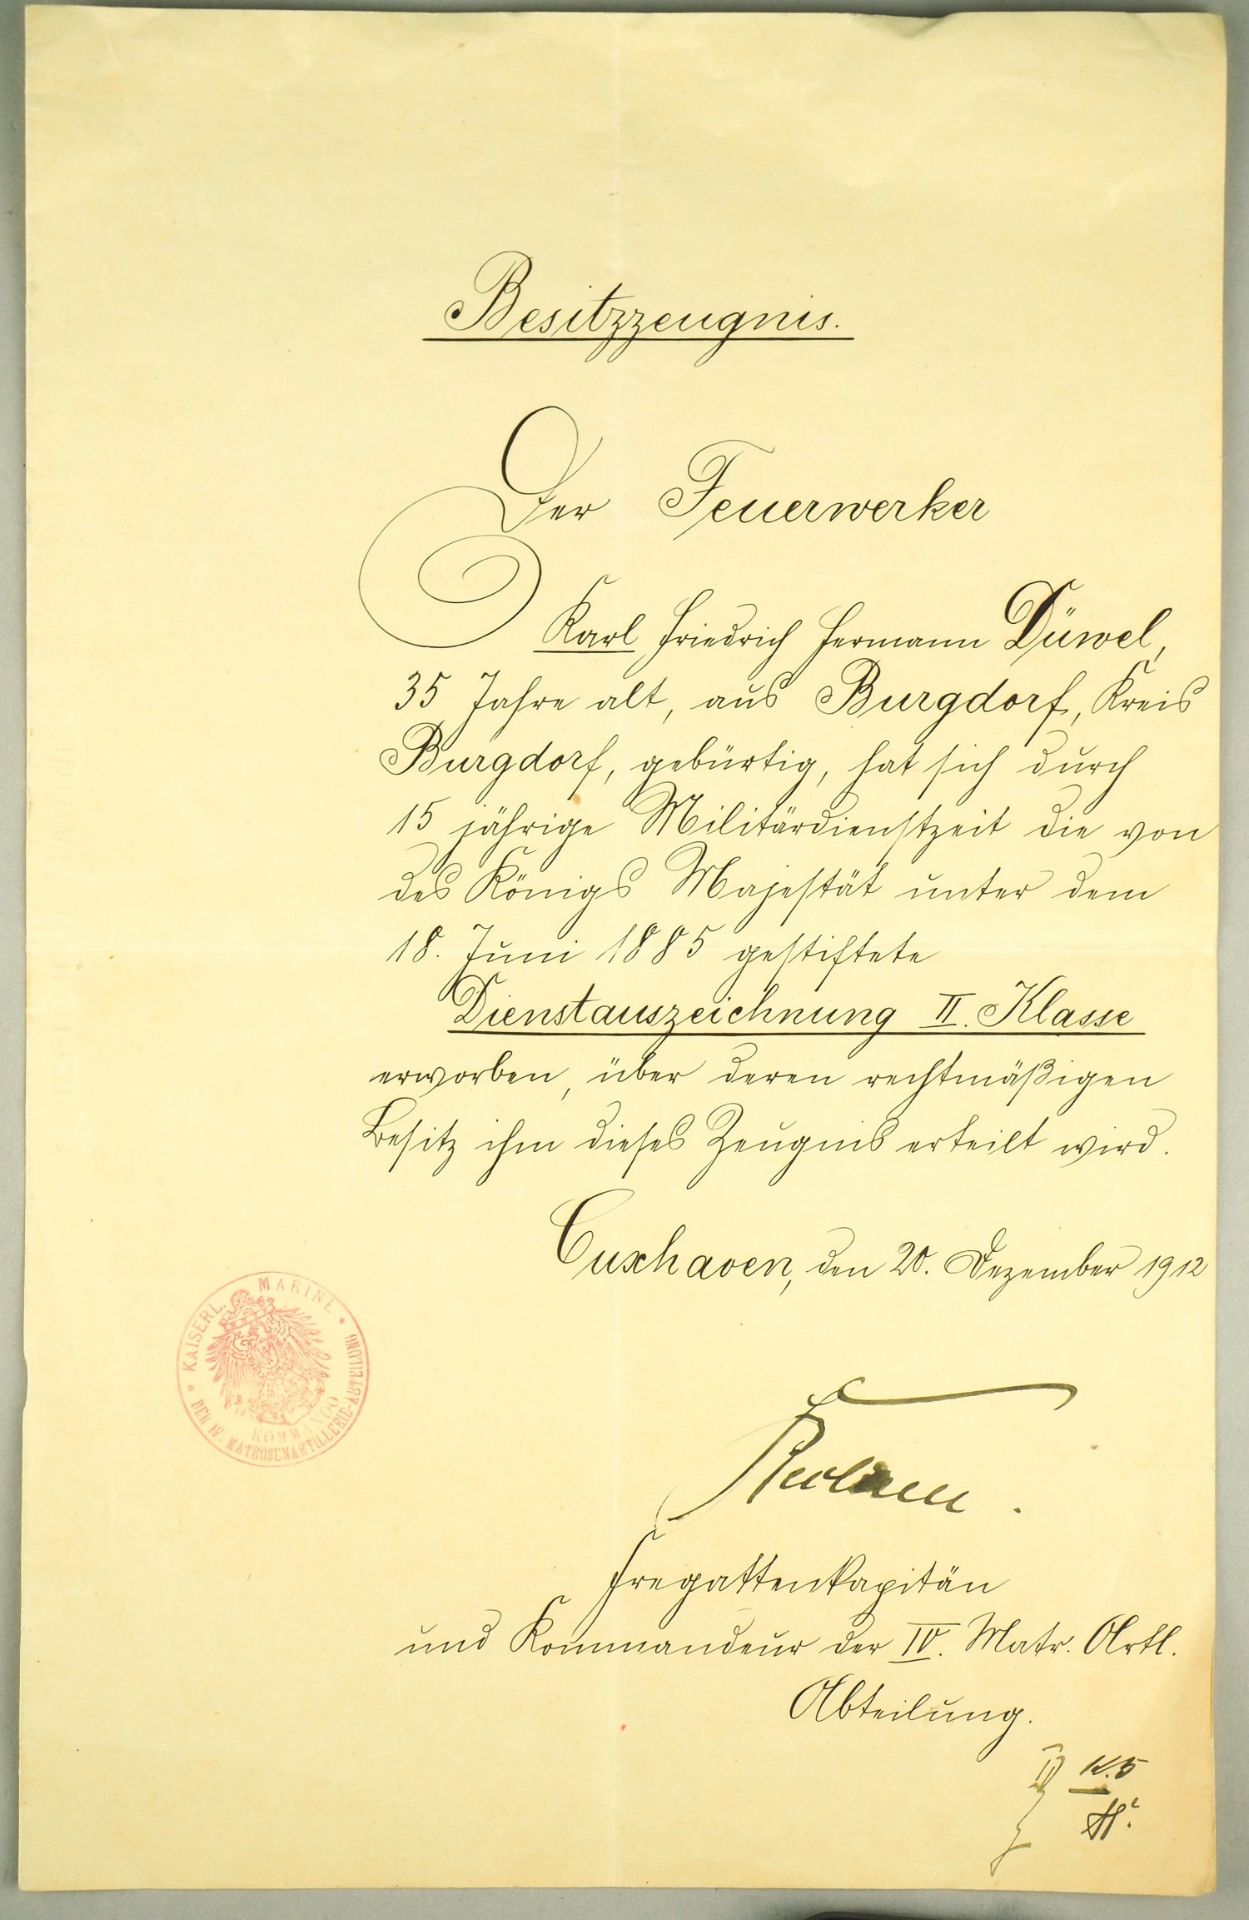 Besitzzeugnis.
Der Feuerwerker
Karl Friedrich Hermann Düwel,
35 Jahre alt, aus Burgdorf, Kreis
Burgdorf, gebürtig, hat sich durch
15 jährige Militärdienstzeit die von
des Königs Majestät unter dem
18. Juni 1885 gestiftete
Dienstauszeichnung II. Klasse
erworben, über deren rechtmäßigen
Besitz ihm dieses Zeugnis erteilt wird.
Cuxhaven, den 20. Dezember 1912
KAISERL. MARINE
KOMMANDO
DER IV. MATROSENARTILLERIE-ABTEILUNG
Fregattenkapitän
und Kommandeur der IV. Matr. Artl.
Abteilung.